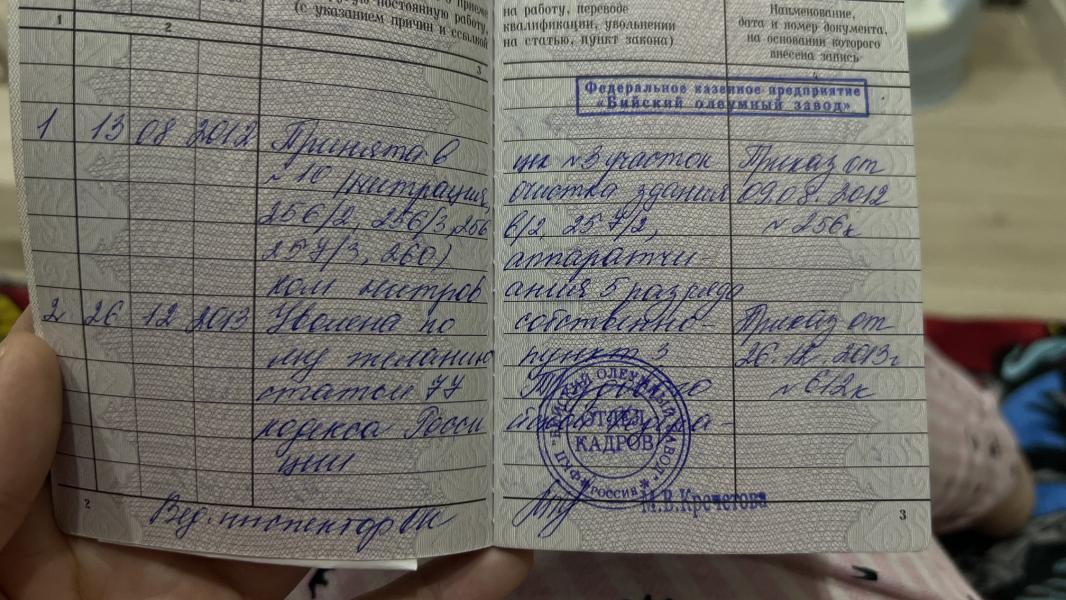 приеме
на работу, переводе
ую постоянную работу, квалификации, увольнении
(с указанием причин и ссылкой на статью, пункт закона)
Наименование,
дата и номер документа,
на основании которого
внесена запись
1 2 3 4
Федеральное казенное предприятие
«Бийский олеумный завод»
1 13 08 2012 Принята в цех №3 участок Приказ от
№10 (нитрация, очистка здания 09.08.2012
256/2, 256/3, 256 в/2, 257/2, №256к
257/3, 260) аппаратчи-
ком нитров ания 5 разряда
2. 26 12 2013 Уволена по собственно- Приказ от
му желанию пункт 3 26.12.2013г
статьи 77 Трудового №612к
кодекса Росси йской Федера-
ции
ФКП "БИЙСКИЙ ОЛЕУМНЫЙ ЗАВОД" РОССИЯ
ОТДЕЛ
КАДРОВ
Вед. инспектор ОК М.В.Кречетова
2 3